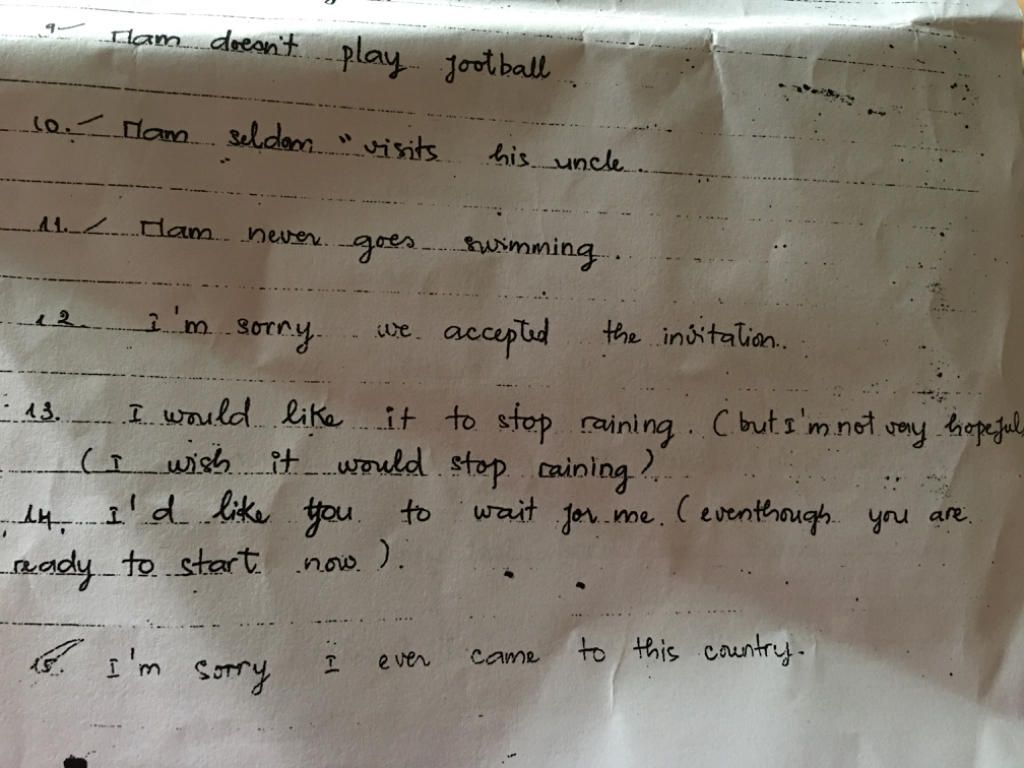 9 Nam doesn't play football
10. Nam seldom visits his uncle.
11. Nam never goes swimming.
12. I'm sorry we accepted the invitation.
13. I would like it to stop raining. (but I'm not very hopeful
(I wish it would stop raining)
14. I'd like you to wait for me. (eventhough you are
ready to start now).
15. I'm sorry I ever came to this country.